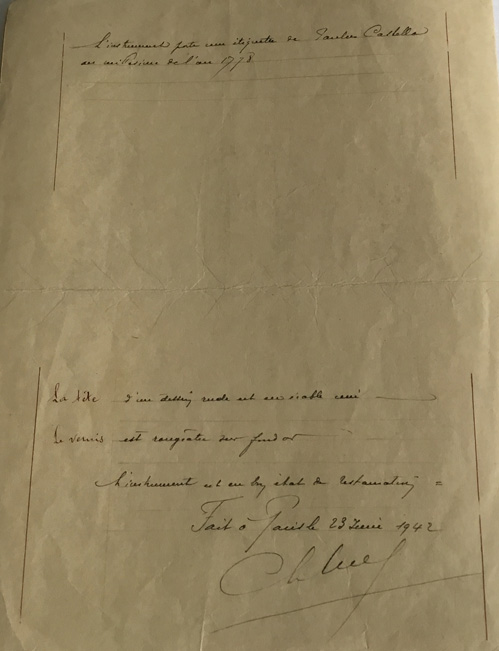 L'instrument porte une étiquette de Paulus Castello
de l'an 1778
La tête d'un dessin rude est en érable
Le vernis est rougeâtre sur fond or
L'instrument est en bon état de restauration =
Fait à Paris le 23 Juin 1942